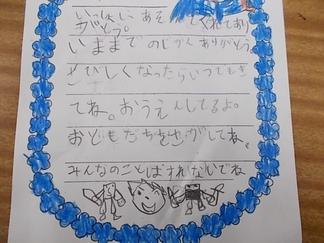 いっしょにあそんでくれてあり
がとう。
いままでのじかんありがとう
さびしくなったらいつでもき
てね。おうえんしてるよ。
おともだちをさがしてね。
みんなのことはすれないでね